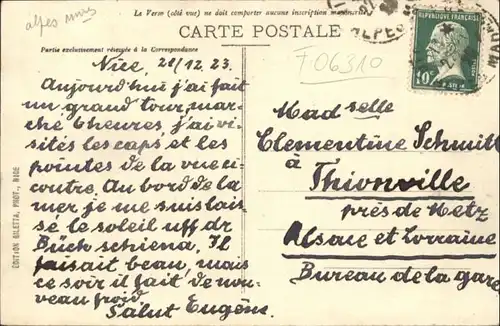 alpes mmes
Le Verso (côté vue) ne doit comporter aucune inscription manuscrite
CARTE POSTALE
Partie exclusivement réservée à la Correspondance
F06310
ALPES
RÉPUBLIQUE FRANÇAISE
10c
Nice, 28/12.23.
Aujourd'hui j'ai fait
un grand tour, mar-
ché 6 heures, j'ai vi-
sités les caps, et les
pointes de la vue ci-
contre. Au bord de la
mer je me suis lais-
sé le soleil uff dr
Bück schiena. Il
faisait beau, mais
ce soir il fait de nou-
veau froid.
Salut Eugène.
Mad selle
Clementine Schmitt
à
Thionville
près de Metz
Alsace et Lorraine
Bureau de la gare
ÉDITION GILETTA, PHOT., NICE